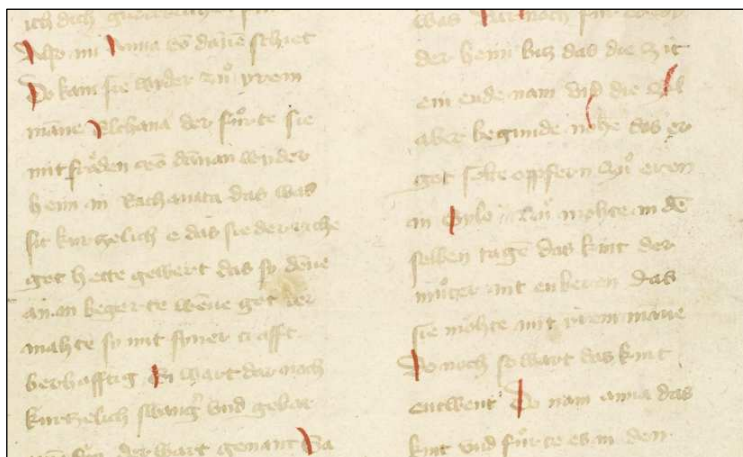 ich dich
Also nü Anna vō dāne schiet
Do kam sie wyder zuͦ yrem
māne Elchana der fuͦrte sie
mit froͤden vō dānan wyder
heim in Ramatha das was
sit kurtzelich e das sie der riche
got hette gewert das sy dēne
an im begerte wēne got der
mahte sy mit syner crafft
berhafftig Es wart dar noch
kurtzelich swang vnd gebar
der wart genant Sa
was Dar noch fuͦr
der heim bitz das die zit
ein ende nam vnd die Zil
aber begunde nohe das er
got solte oppfern zuͦ eren
in Sylo Nuͦ mohte in dē
selben tagē das kint der
muͦter nit enberen das
sie mohte mit yrem māne
Do noch so wart das kint
entwent Do nam anna das
kint vnd fuͦrte es in dem